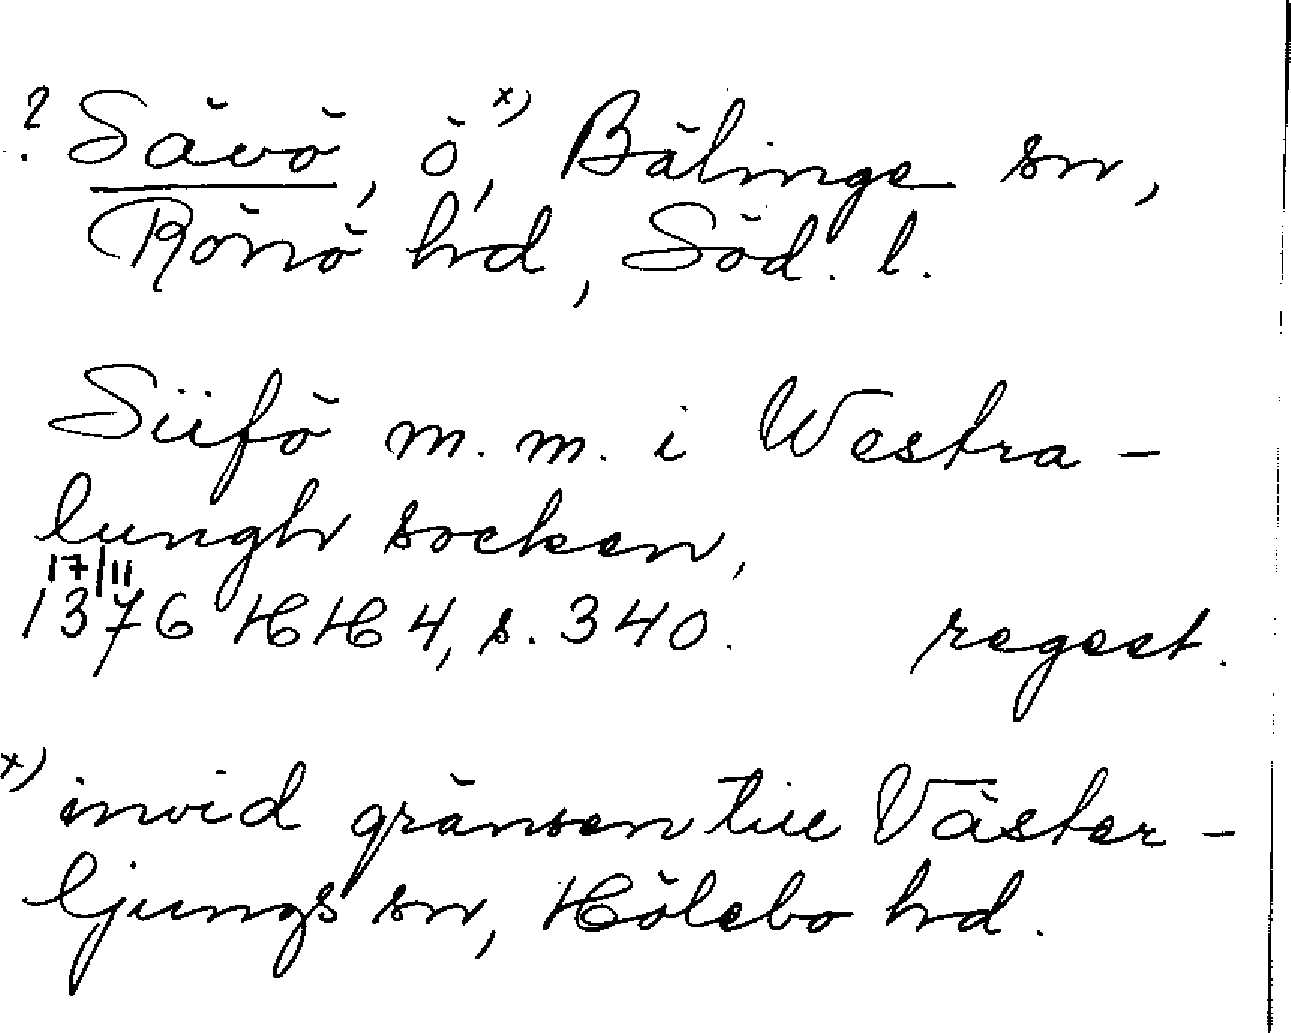 ? Sävö, ö,x) Bälinge sn,
Rönö hd, Söd. l.
Siifö m. m. i Westra-
lungh socken,
17/11
1376 HH 4, s. 340. regest.
x) invid gränsen till Väster-
ljungs sn, Hölebo hd.